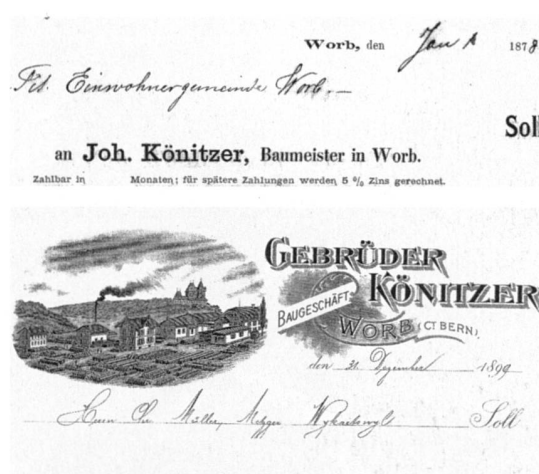 Worb, den Jan 1 1878
Tit. Einwohnergemeinde Worb.—
Soll
an Joh. Könitzer, Baumeister in Worb.
Zahlbar in Monaten; für spätere Zahlungen werden 5 % Zins gerechnet.
GEBRÜDER
KÖNITZER
BAUGESCHÄFT
WORB (CT BERN).
den 31. Dezember 1899
Herrn Müller, Metzger Soll